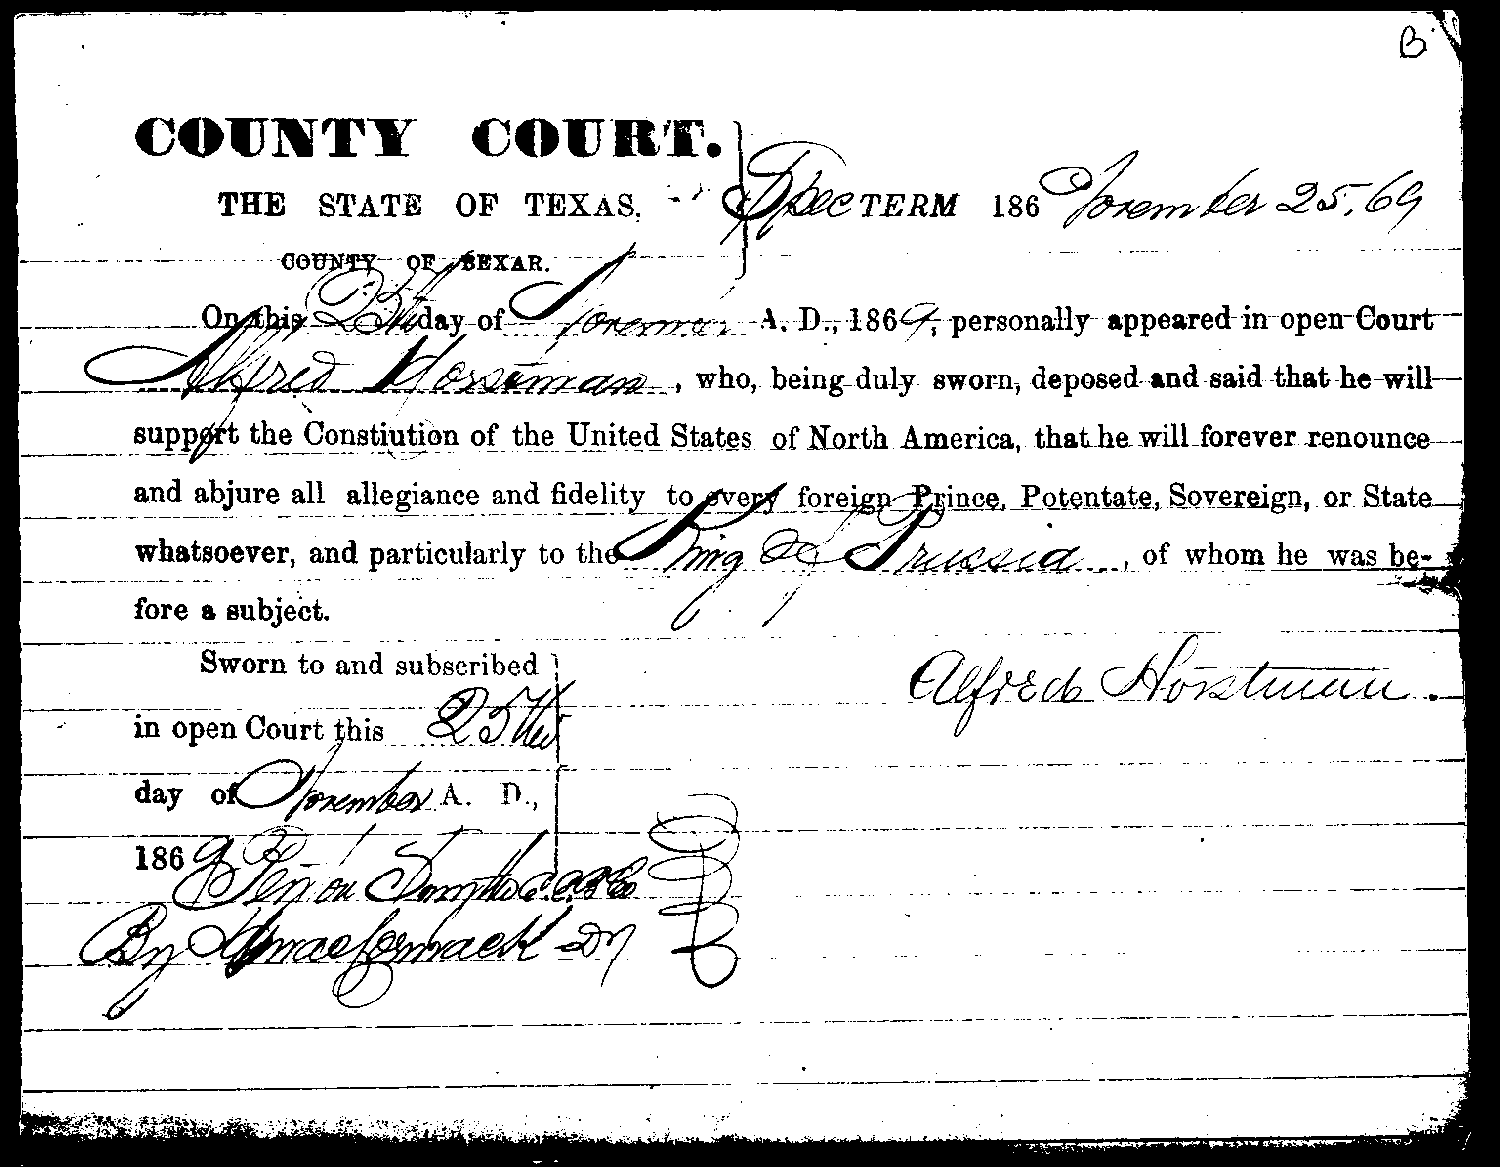 B
COUNTY COURT.
THE STATE OF TEXAS. Spec TERM 186 November 25. 69
COUNTY OF BEXAR.
On this 25th day of November A. D., 1869, personally appeared in open Court
Alfred Horstman, who, being duly sworn, deposed and said that he will
support the Constiution of the United States of North America, that he will forever renounce
and abjure all allegiance and fidelity to every foreign Prince, Potentate, Sovereign, or State
whatsoever, and particularly to the King of Prussia, of whom he was be-
fore a subject.
Sworn to and subscribed
Alfred Horstman.
in open Court this 25th
day of November A. D.,
1869 Smith
By